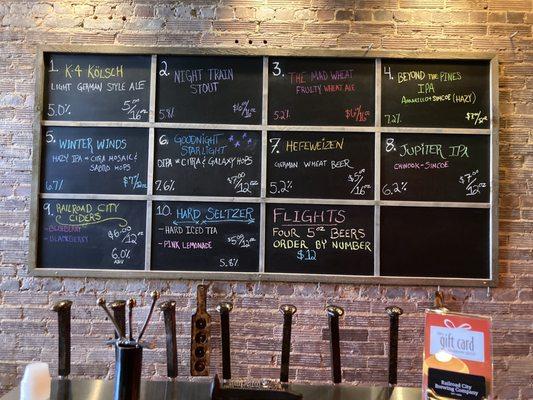 1. K-4 KÖLSCH
LIGHT GERMAN STYLE ALE
5.0%
$5.00/16oz
2. NIGHT TRAIN
STOUT
5.8%
$6.00/16
3. THE MAD WHEAT
FRUITY WHEAT ALE
5.2%
$6.00/16
4. BEYOND THE PINES
IPA
AMARILLO + SIMCOE (HAZY)
7.2%
5. WINTER WINDS
HAZY IPA w CITRA MOSAIC &
SABRO HOPS
6.7%
6. GOODNIGHT
STARLIGHT
DIPA w CITRA & GALAXY HOPS
7.6%
$7.00/12oz
7. HEFEWEIZEN
GERMAN WHEAT BEER
5.2%
8. JUPITER IPA
CHINOOK-SIMCOE
6.2%
9. RAILROAD CITY
CIDERS
-BLUEBERRY
-BLACKBERRY
$6.00/12oz
6.0%
ABV
10. HARD SELTZER
- HARD ICED TEA
- PINK LEMONADE
$5.00/12oz
5.8%
FLIGHTS
FOUR 5oz BEERS
ORDER BY NUMBER
$12
gift card
Railroad City
Brewing Company